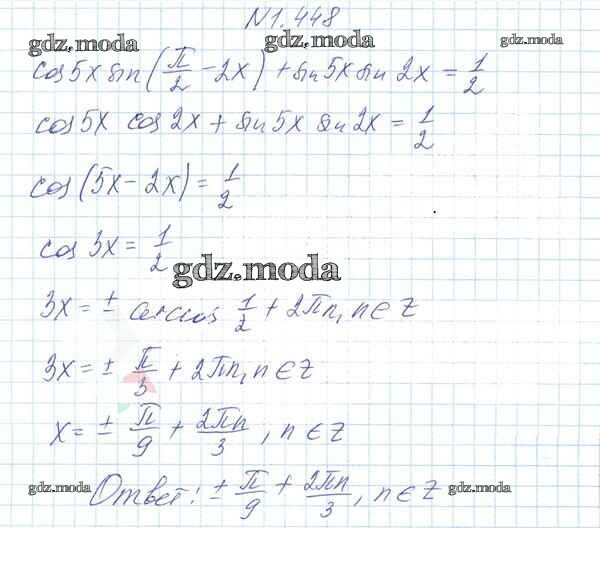 N1.448
gdz.moda gdz.moda gdz.moda
cos5x sin(π/2 - 2x) + sin5x sin 2x = 1/2
cos5x cos2x + sin5x sin2x = 1/2
cos(5x - 2x) = 1/2
cos 3x = 1/2
gdz.moda
3x = ± arccos 1/2 + 2πn, n ∈ Z
3x = ± π/3 + 2πn, n ∈ Z
x = ± π/9 + 2πn/3, n ∈ Z
gdz.moda Ответ: ± π/9 + 2πn/3, n ∈ Z gdz.moda